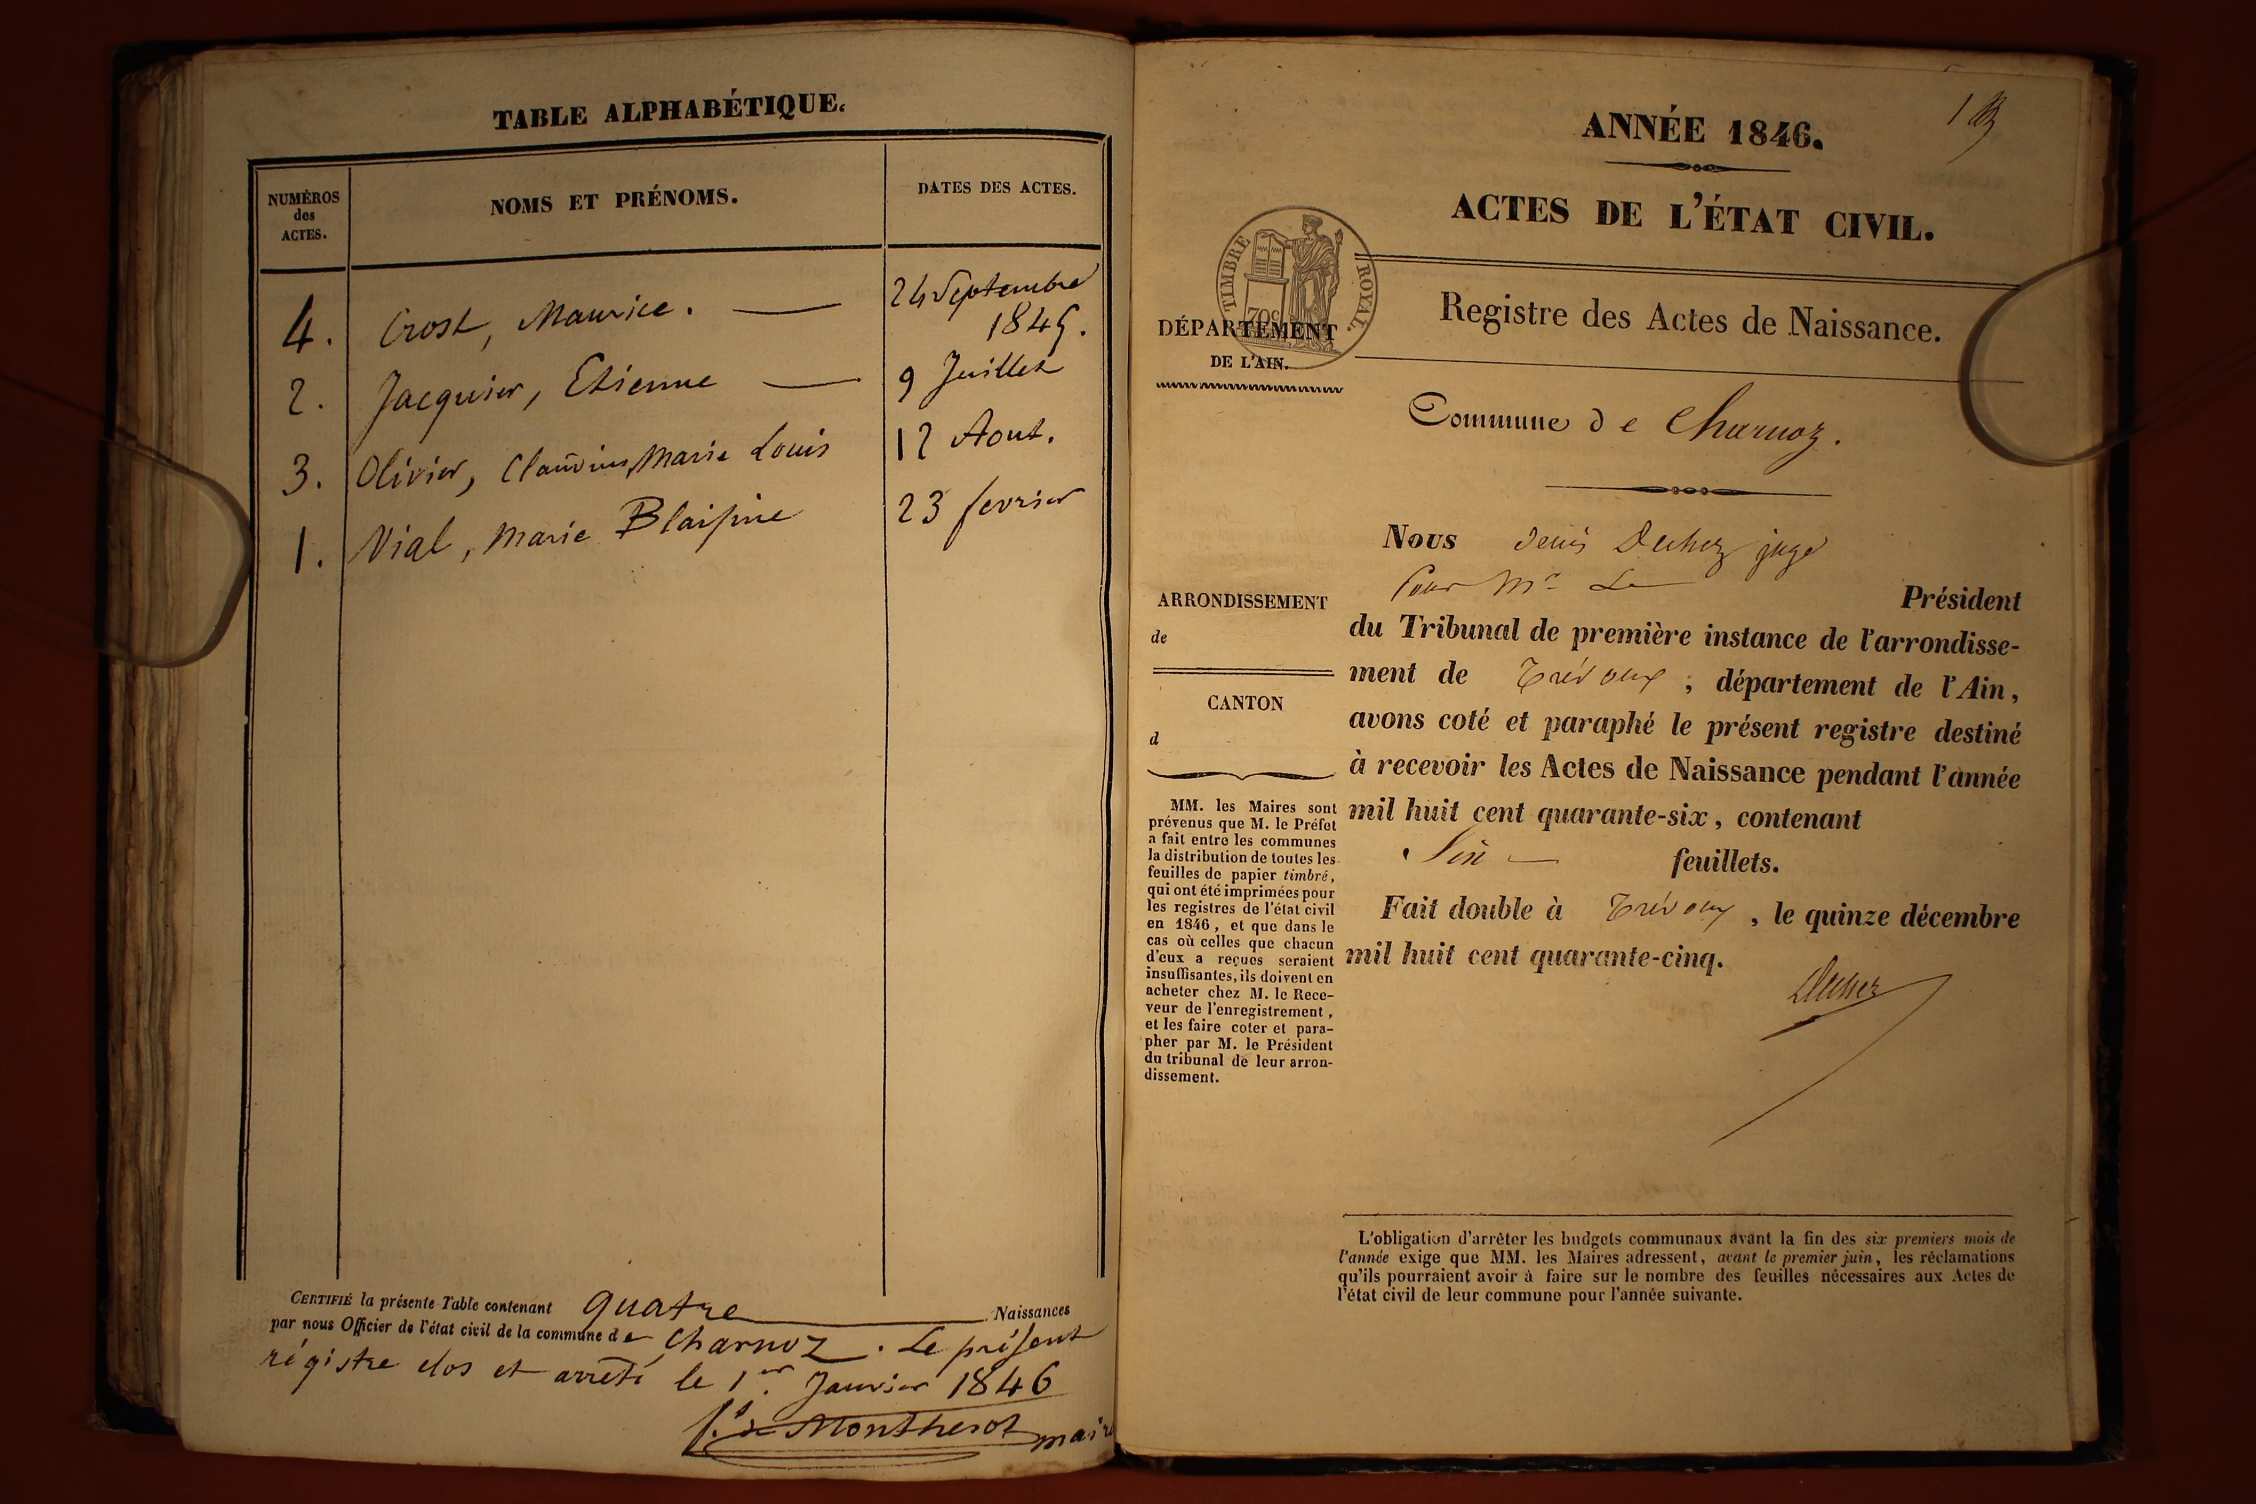 TABLE ALPHABÉTIQUE.
NUMÉROS
des
ACTES.
NOMS ET PRÉNOMS.
DATES DES ACTES.
4. Crost, Maurice. 24 Septembre
1845.
2. Jacquier, Etienne 9 Juillet
3. Olivier, Claudius Marie Louis 12 Aout.
1. Vial, Marie Blaisine 23 fevrier
CERTIFIÉ la présente Table contenant quatre Naissances
par nous Officier de l'état civil de la commune de Charnoz. Le présent
régistre clos et arrêté le 1er. Janvier 1846
de Montherot maire
ANNÉE 1846.
1
ACTES DE L'ÉTAT CIVIL.
TIMBRE ROYAL.
70c
DÉPARTEMENT
DE L'AIN.
Registre des Actes de Naissance.
Commune de Charnoz.
Nous Denis Duhez juge
Pour Mr Le
Président
du Tribunal de première instance de l'arrondisse-
ment de Trévoux, département de l'Ain,
avons coté et paraphé le présent registre destiné
à recevoir les Actes de Naissance pendant l'année
mil huit cent quarante-six, contenant
Six feuillets.
Fait double à Trévoux, le quinze décembre
mil huit cent quarante-cinq.
Duhez
ARRONDISSEMENT
de
CANTON
d
MM. les Maires sont
prévenus que M. le Préfet
a fait entre les communes
la distribution de toutes les
feuilles de papier timbré,
qui ont été imprimées pour
les registres de l'état civil
en 1846, et que dans le
cas où celles que chacun
d'eux a reçues seraient
insuffisantes, ils doivent en
acheter chez M. le Rece-
veur de l'enregistrement,
et les faire coter et para-
pher par M. le Président
du tribunal de leur arron-
dissement.
L'obligation d'arrêter les budgets communaux avant la fin des six premiers mois de
l'année exige que MM. les Maires adressent, avant le premier juin, les réclamations
qu'ils pourraient avoir à faire sur le nombre des feuilles nécessaires aux Actes de
l'état civil de leur commune pour l'année suivante.